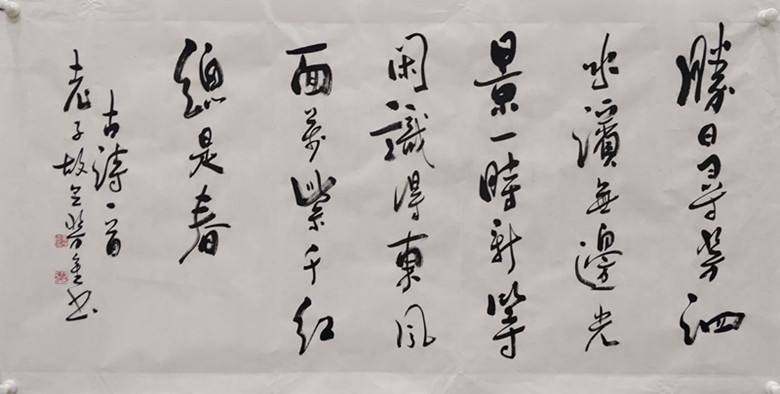 勝日尋芳泗
水濱無邊光
景一時新等
閑識得東風
面萬紫千紅
總是春
古詩一首
老子故里
書